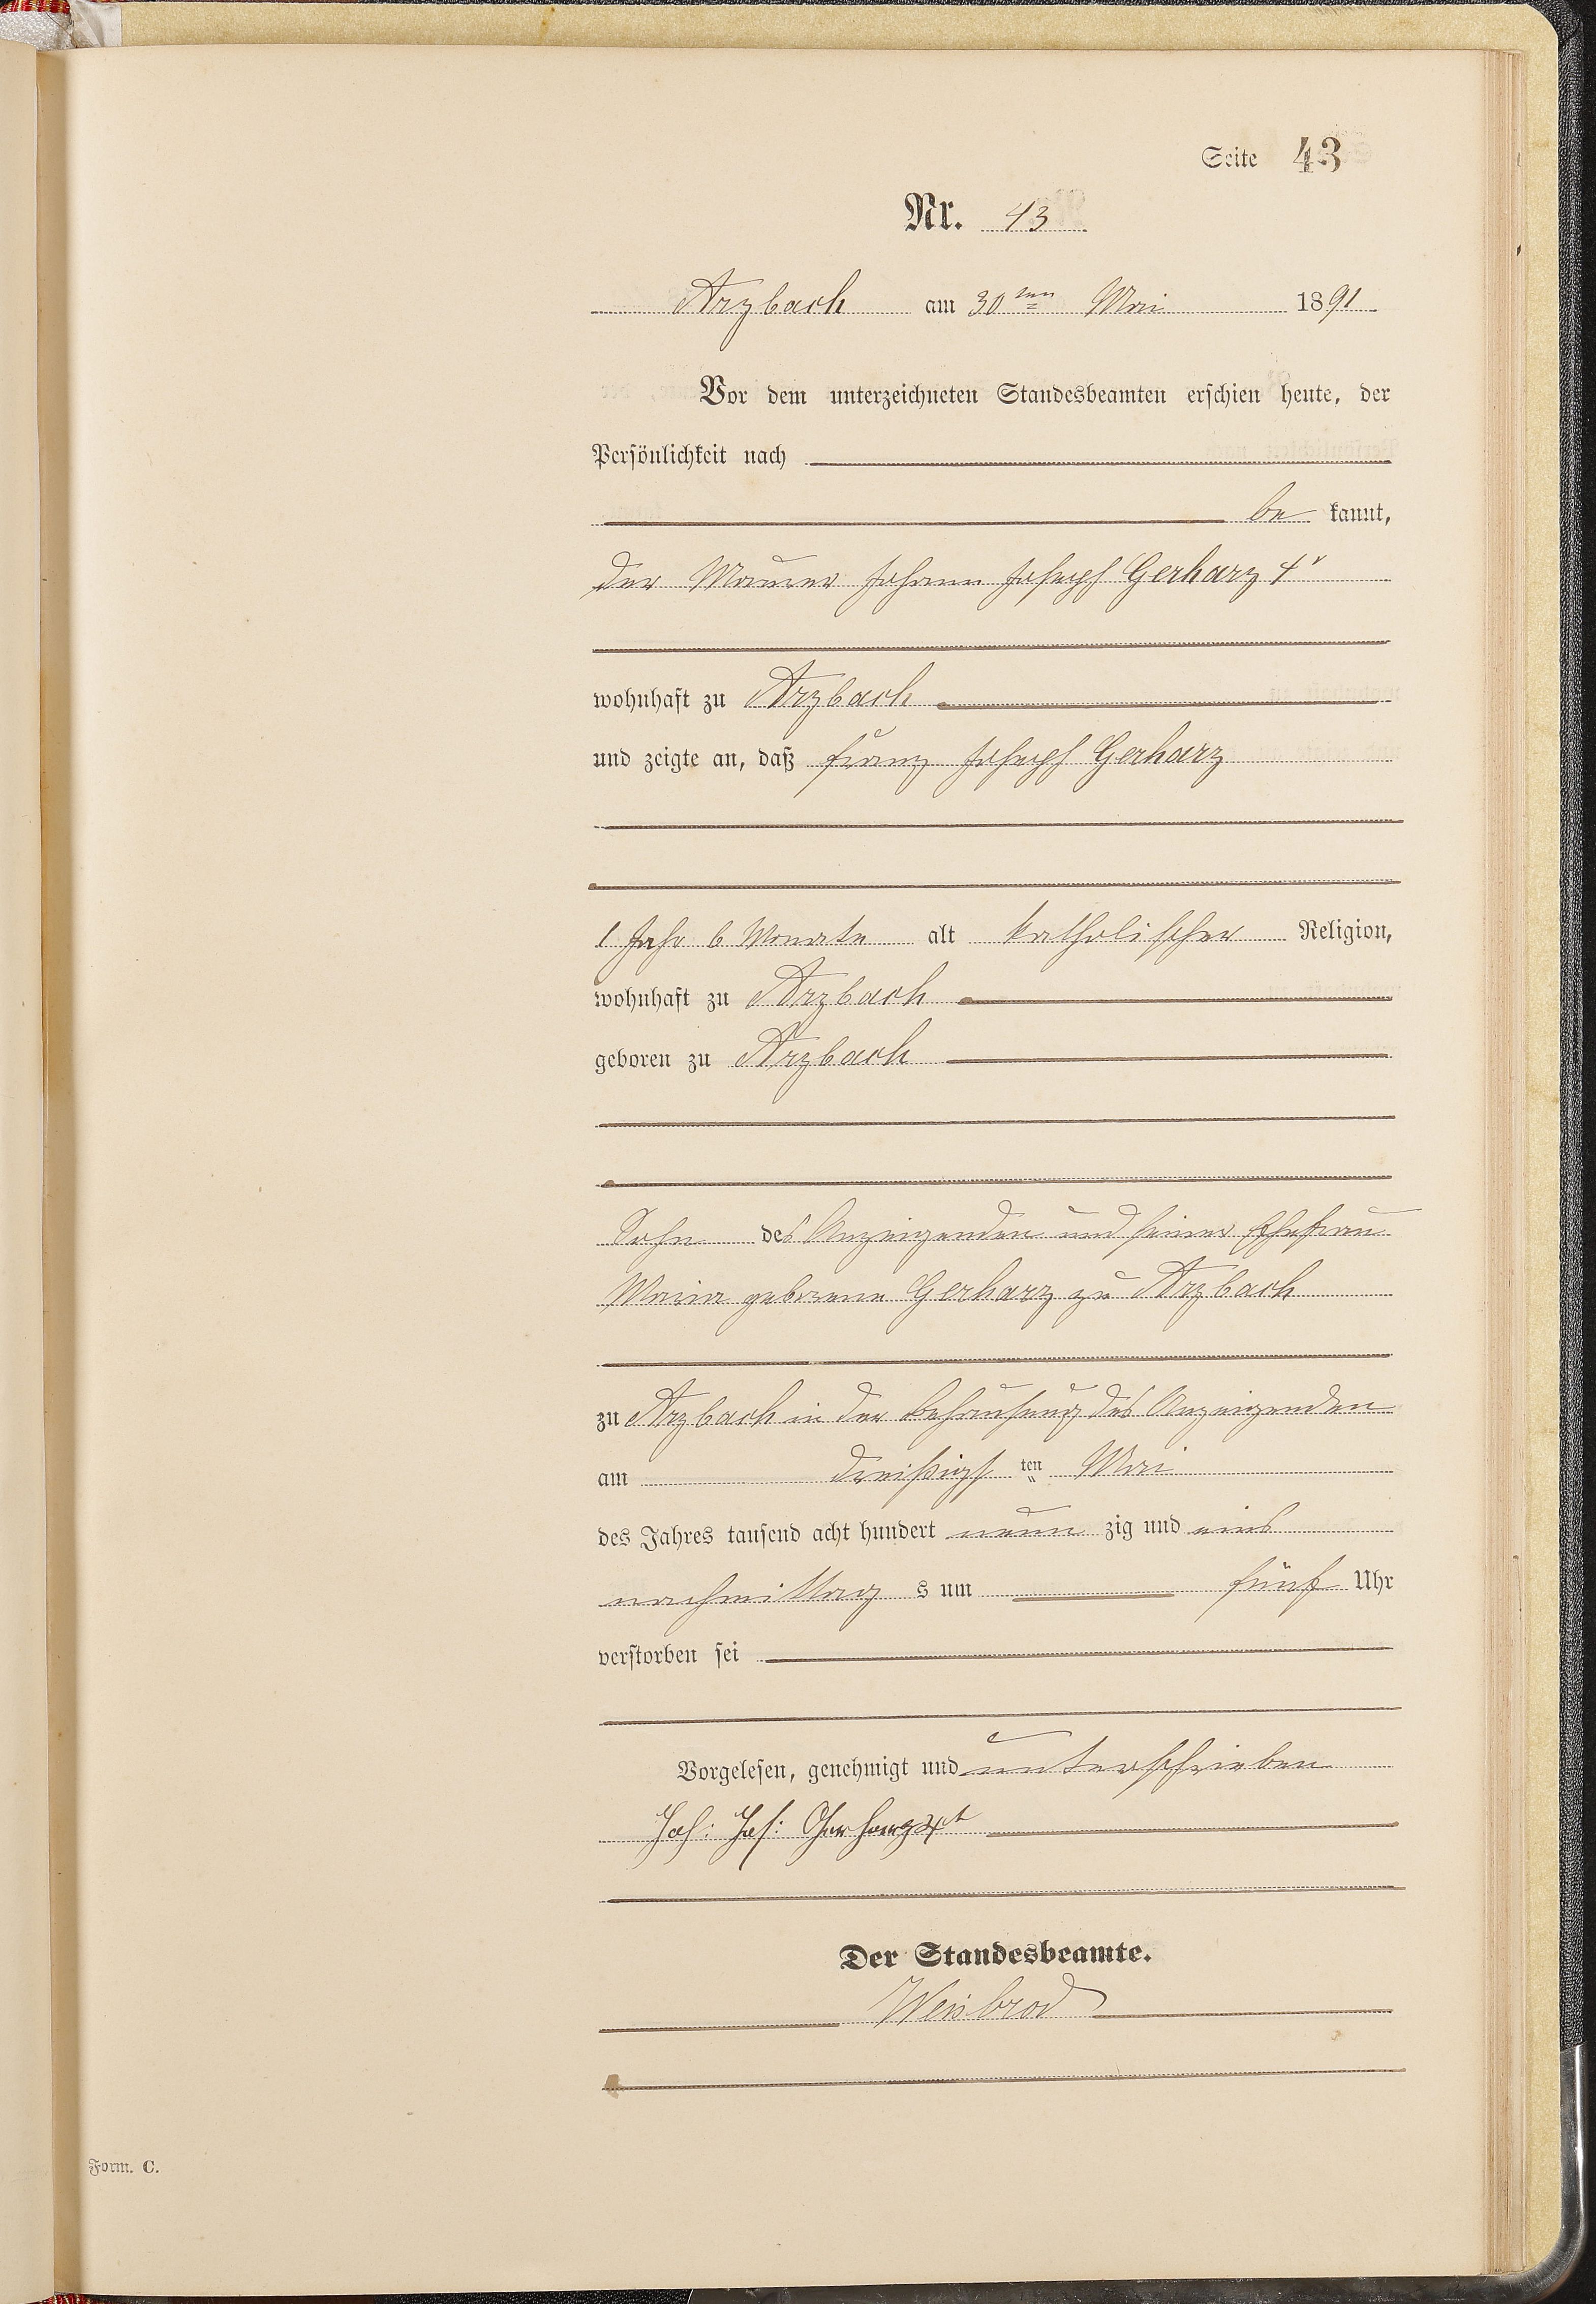 Seite 43
Nr. 43
Arzbach am 30ten Mai 1891
Vor dem unterzeichneten Standesbeamten erschien heute, der
Persönlichkeit nach
be kannt,
der Maurer Johann Joseph Gerharz 4r
wohnhaft zu Arzbach
und zeigte an, daß Franz Joseph Gerharz
1 Jahr 6 Monate alt katholischer Religion,
wohnhaft zu Arzbach
geboren zu Arzbach
Sohn des Anzeigenden und seiner Ehefrau
Maria geborene Gerharz zu Arzbach
zu Arzbach in der Behausung des Anzeigenden
am dreißigsten Mai
des Jahres tausend acht hundert neun zig und eins
nachmittag s um fünf Uhr
verstorben sei
Vorgelesen, genehmigt und unterschrieben
Joh: Jos: Gerharz 4t
Der Standesbeamte.
Weisbrod
Form. C.